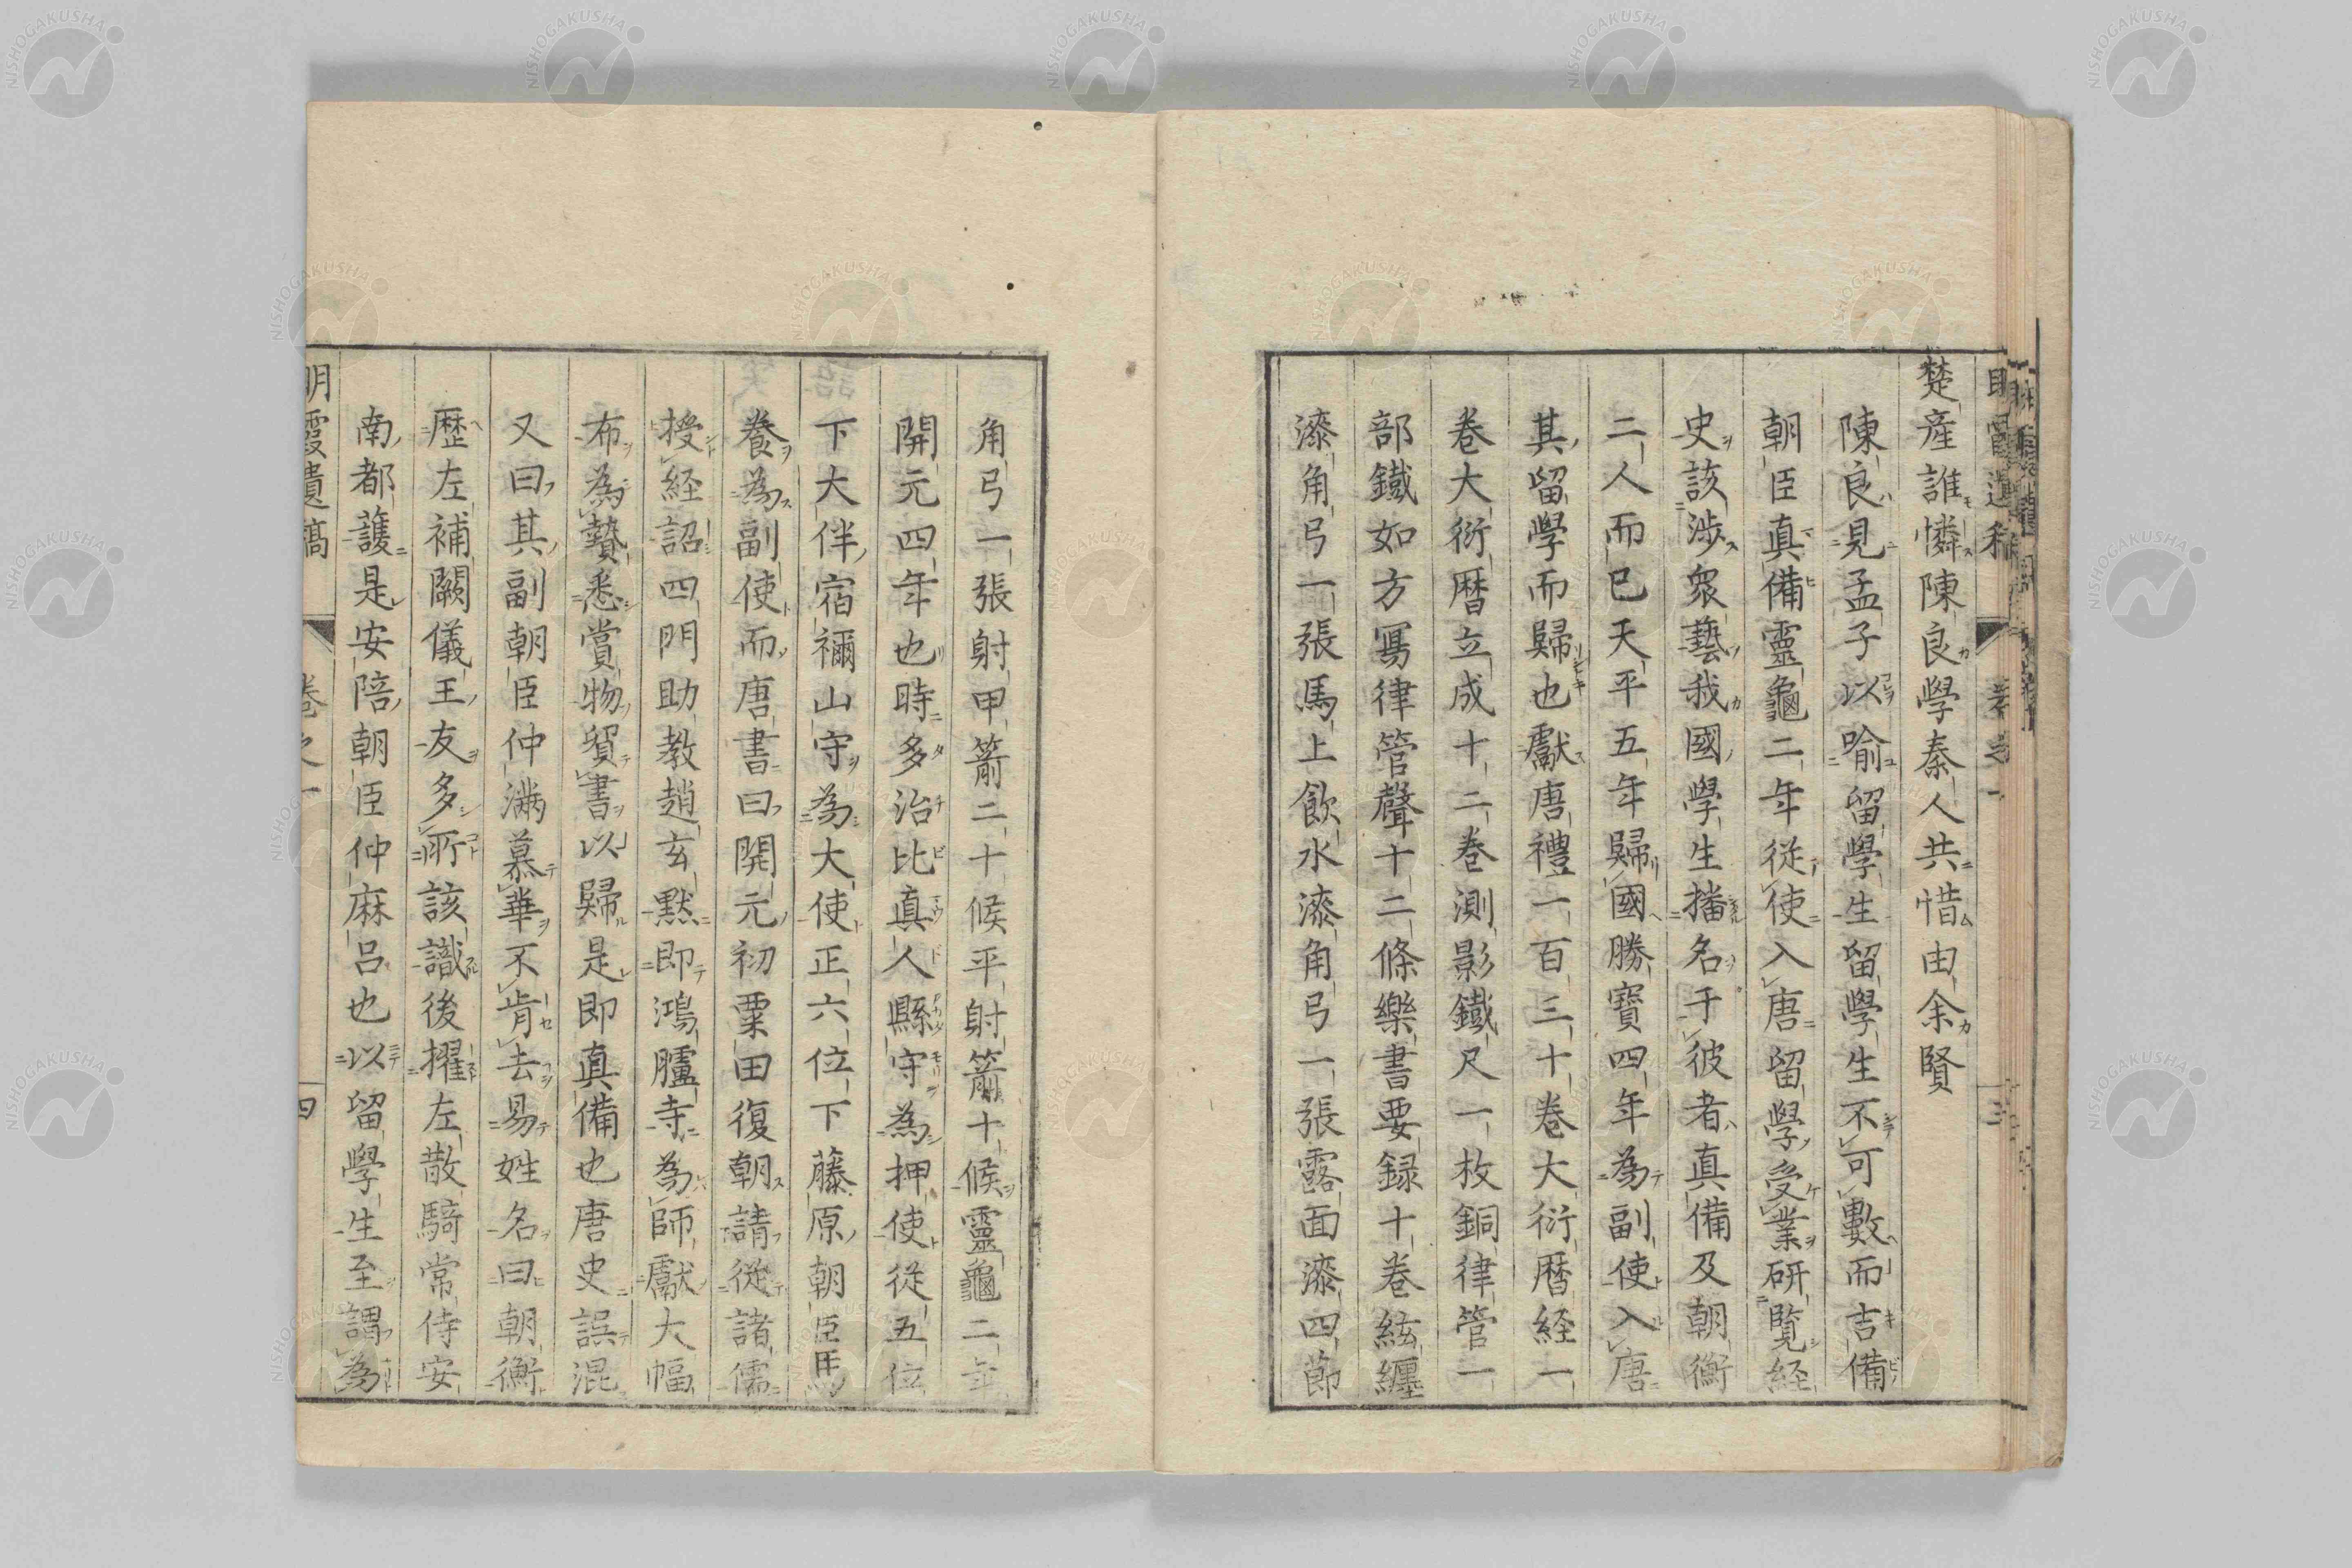 楚産誰憐陳良學秦人共惜由余賢
陳良見孟子以喻留學生留學生不可數而吉備
朝臣真備靈龜二年從使入唐留學受業研覽経
史該渉衆藝我國學生播名于彼者真備及朝衡
二人而已天平五年歸國勝寶四年為副使入唐
其留學而歸也獻唐禮一百三十巻大衍暦経一
巻大衍暦立成十二巻測影鐵尺一枚銅律管一
部鐵如方寫律管聲十二條樂書要録十巻絃纏
漆角弓一張馬上飲水漆角弓一張露面漆四節
角弓一張射甲箭二十候平射箭十候靈龜二年
開元四年也時多治比真人縣守為押使從五位
下大伴宿禰山守為大使正六位下藤原朝臣馬
養為副使而唐書曰開元初粟田復朝請從諸儒
授経詔四門助教趙玄黙即鴻臚寺為師獻大幅
布為贄悉賞物貿書以歸是即真備也唐史誤混
又曰其副朝臣仲満慕華不肯去易姓名曰朝衡
歴左補闕儀王友多所該識後擢左散騎常侍安
南都護是安陪朝臣仲麻呂也以留學生至謂為
明霞遺稿 巻之一 四
NISHOGAKUSHA